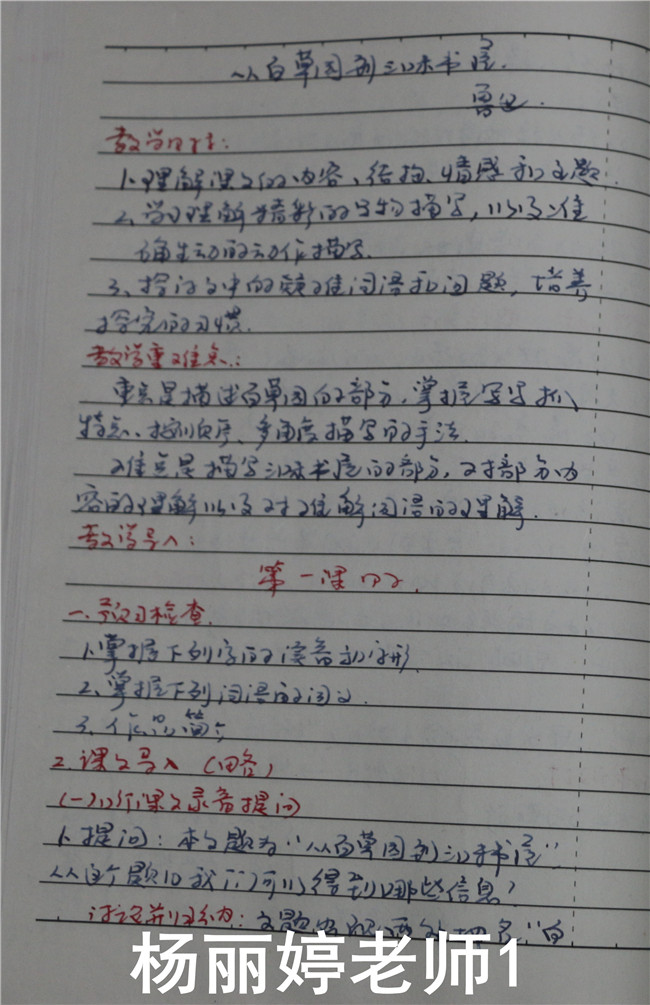 从百草园到三味书屋.
鲁迅.
教学目标:
1、理解课文的内容、结构、情感和主题.
2、学习理解精彩的写物描写,以及准
确生动的动作描写.
3、探讨文中的疑难词语和问题,培养
探究的习惯.
教学重难点:
重点是描述百草园的部分,掌握写景抓
特点、按顺序、多角度描写的手法.
难点是描写三味书屋的部分,对部分内
容的理解以及对难解词语的理解.
教学导入:
第一课时.
一.预习检查.
1.掌握下列字的读音和字形.
2、掌握下列词语的词义.
3、作品简介
2.课文导入(略)
(一)听课文录音提问
1、提问:本文题为“从百草园到三味书屋”
从这个题目我们可以得到哪些信息?
讨论并归纳:文题出现两处地名:“百
杨丽婷老师1